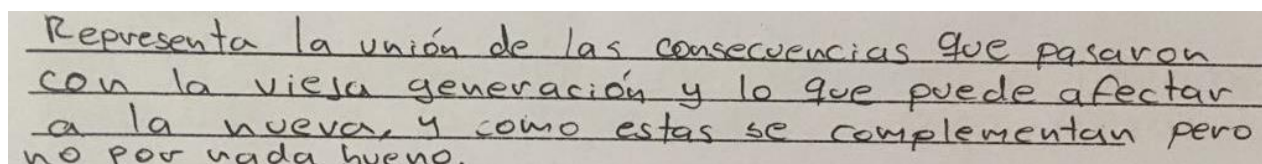 Representa la unión de las consecuencias que pasaron
con la vieja generación y lo que puede afectar
a la nueva, y como estas se complementan pero
no por nada bueno.